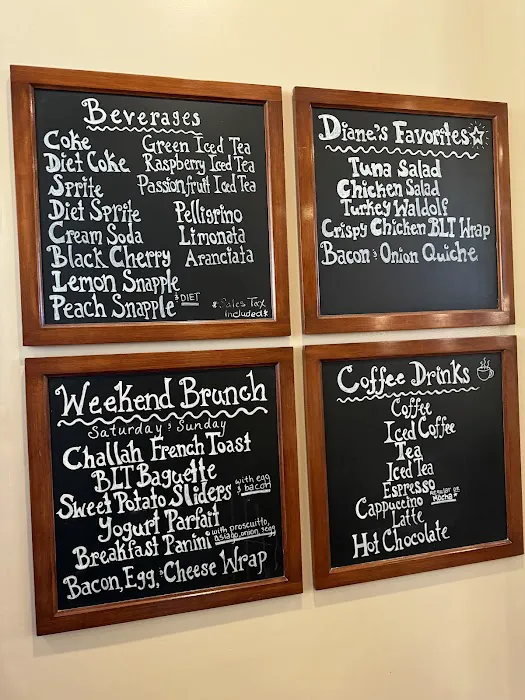 Beverages
Coke
Diet Coke
Sprite
Diet Sprite
Cream Soda
Black Cherry
Lemon Snapple
Peach Snapple & DIET
Green Iced Tea
Raspberry Iced Tea
Passionfruit Iced Tea
Pelligrino
Limonata
Aranciata
*Sales Tax
included*
Diane's Favorites
Tuna Salad
Chicken Salad
Turkey Waldorf
Crispy Chicken BLT Wrap
Bacon & Onion Quiche
Weekend Brunch
Saturday & Sunday
Challah French Toast
BLT Baguette
Sweet Potato Sliders with egg
& bacon
Yogurt Parfait
Breakfast Panini with prosciutto,
asiago, onion, & egg
Bacon, Egg, & Cheese Wrap
Coffee Drinks
Coffee
Iced Coffee
Tea
Iced Tea
Espresso
Cappuccino regular or
Mocha*
Latte
Hot Chocolate